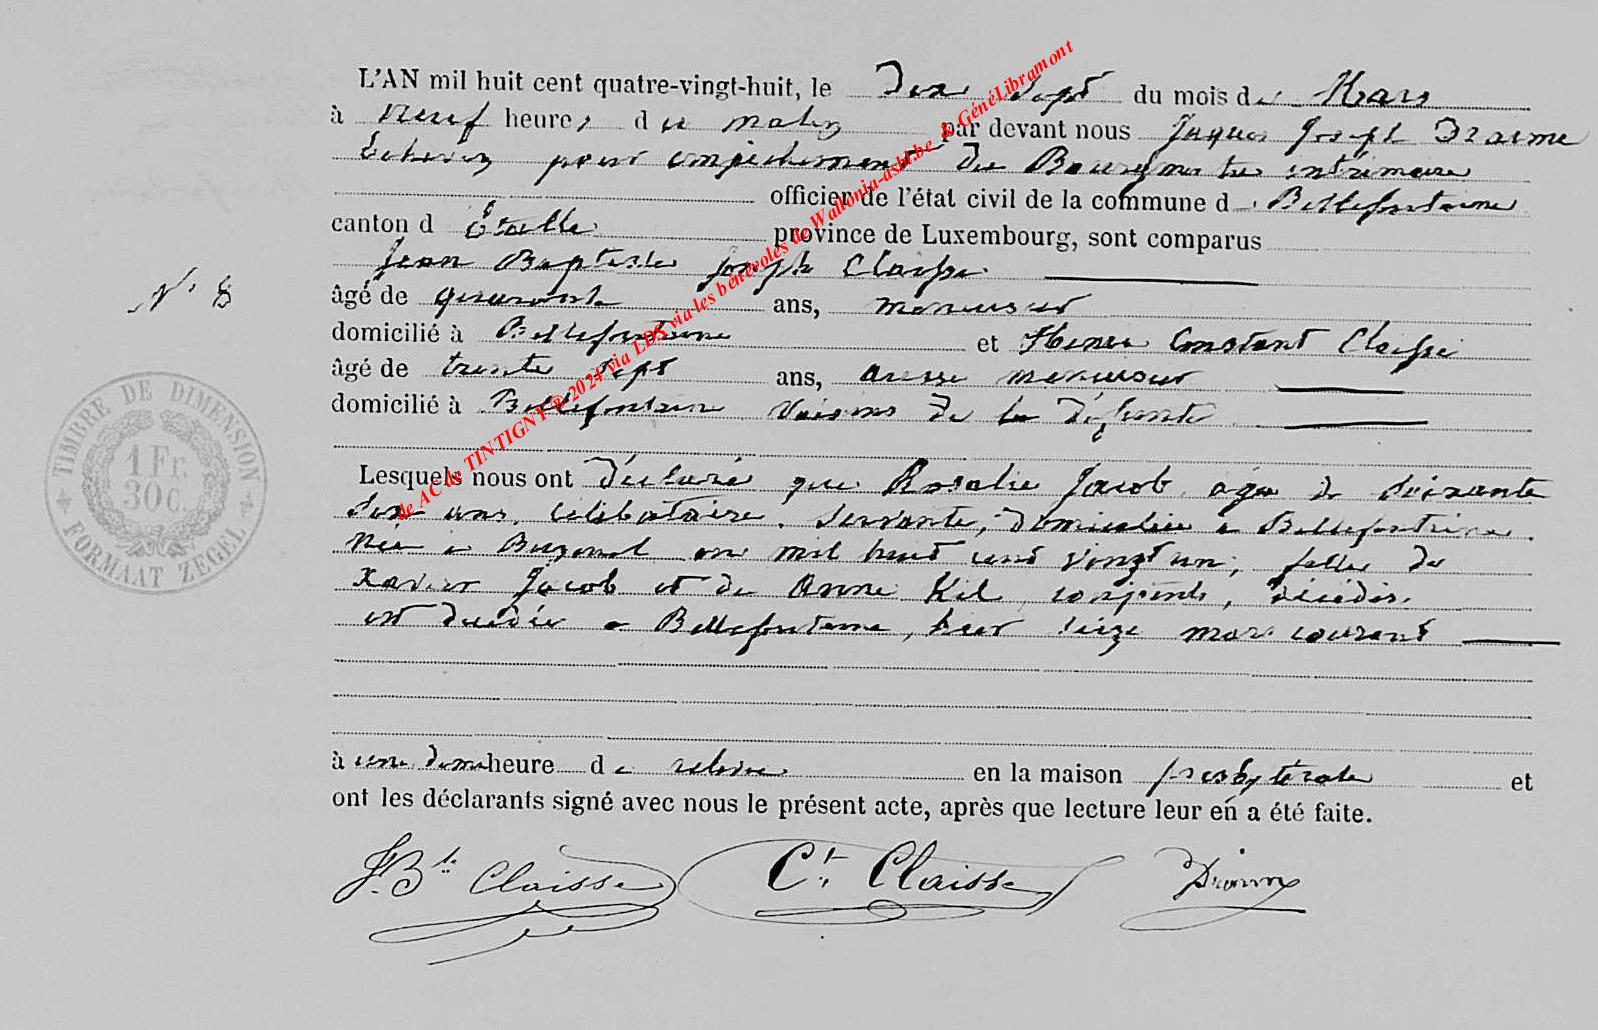 L'AN mil huit cent quatre-vingt-huit, le Dix Sept du mois de Mars
à Neuf heures du matin par devant nous Jaques Joseph
Echevin pour empêchement du Bourgmestre intérimaire
officier de l'état civil de la commune de Bellefontaine
canton d Etalle province de Luxembourg, sont comparus
Jean Baptiste Joseph Claisse
N° 8
âgé de quarante ans, menuisier
domicilié à Bellefontaine et Henri Constant Claisse
âgé de trente sept ans, aussi menuisier
domicilié à Bellefontaine Voisins de la défunte
Lesquels nous ont déclaré que Rosalie Jacob, agée de Soixante
Sept ans, célibataire, servante, domiciliée à Bellefontaine
Née à Buzenol en mil huit cent vingt un, fille de
Xavier Jacob et de Anne Kil, conjoints, décédés,
est décédée à Bellefontaine, hier seize mars courant
à une demi heure de relevée en la maison presbytérale et
ont les déclarants signé avec nous le présent acte, après que lecture leur en a été faite.
J. Bte Claisse Ct. Claisse
TIMBRE DE DIMENSION
1 Fr.
30 c.
FORMAAT ZEGEL
de AC de TINTIGNY ® 2024 via LDS via les bénévoles de Wallonia-asbl.be & GénéLibramont